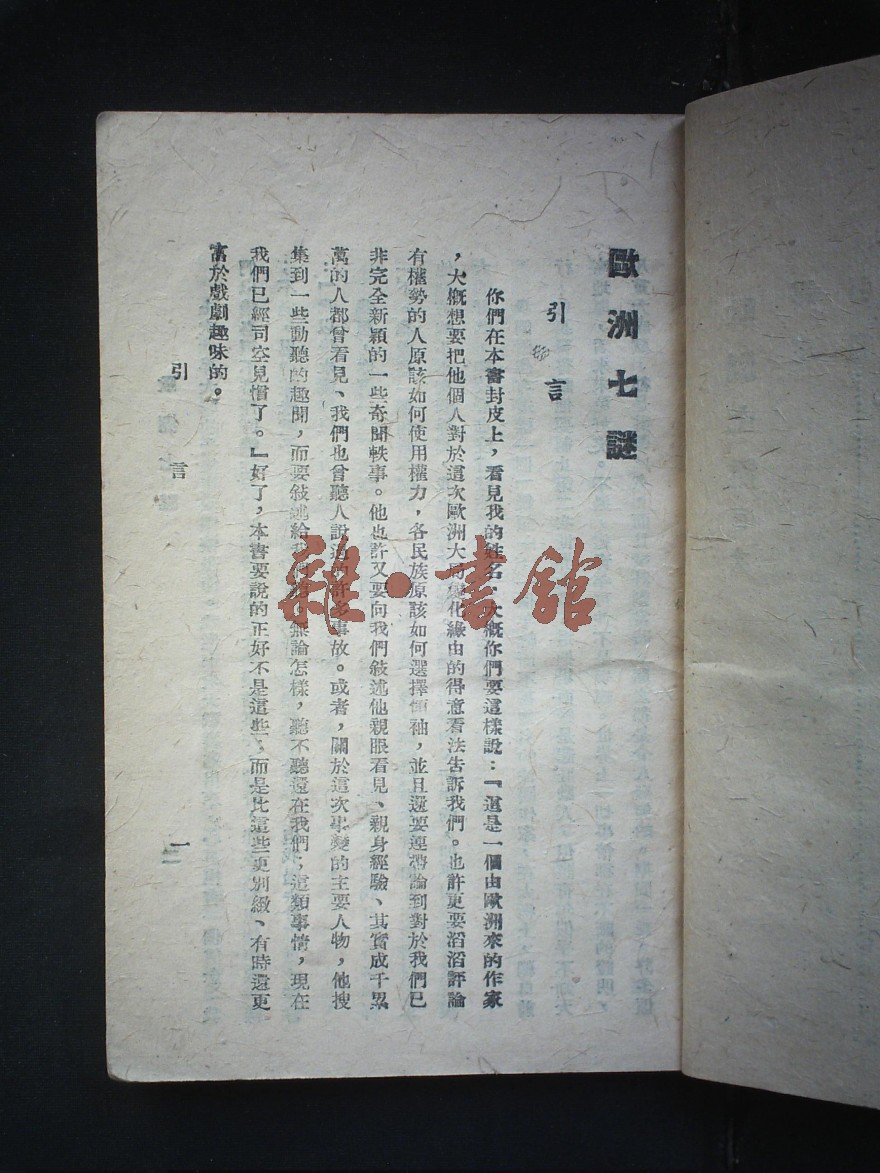 歐洲七謎
引言
你們在本書封皮上，看見我的姓名，大概你們要這樣說：『這是一個由歐洲來的作家
，大概想要把他個人對於這次歐洲大局變化緣由的得意看法告訴我們。也許更要滔滔評論
有權勢的人原該如何使用權力，各民族原該如何選擇領袖，並且還要連帶論到對於我們已
非完全新穎的一些奇聞軼事。他也許又要向我們敍述他親眼看見、親身經驗、其實成千累
萬的人都曾看見、我們也曾聽人說過的許多事故。或者，關於這次事變的主要人物，他搜
集到一些動聽的趣聞，而要敍述給我們。無論怎樣，聽不聽還在我們，這類事情，現在
我們已經司空見慣了。』好了，本書要說的正好不是這些，而是比這些更別緻、有時還更
富於戲劇趣味的。
引言
一
雜·書館